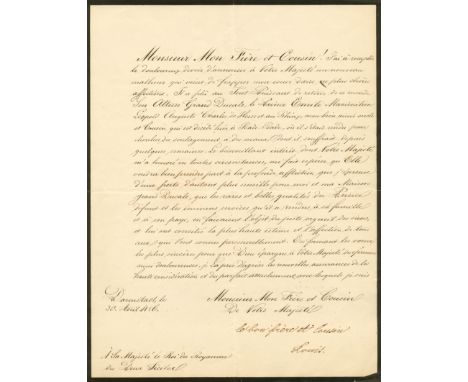 Monsieur Mon Frère et Cousin! J'ai à remplir
le douloureux devoir d'annoncer à Votre Majesté un nouveau
malheur qui vient de frapper mon cœur dans ses plus chères
affections. Il a plû au Tout Puissant de retirer de ce monde
Son Altesse Grand Ducale, le Prince Emile Maximilien
Léopold Auguste Charles de Hesse et au Rhin, mon bien aimé oncle
et Cousin qui est décédé hier à Bade-Bade, où il s'était rendu pour
chercher du soulagement à des maux dont il souffrait depuis
quelques semaines. Le bienveillant intérêt dont Votre Majesté
m'a honoré en toutes circonstances, me fait espérer qu'Elle
voudra bien prendre part à la profonde affliction que j'éprouve
d'une perte d'autant plus sensible pour moi et ma Maison
grand Ducale, que les rares et belles qualités du Prince
défunt et les immenses services qu'il a rendus à sa famille
et à son pays, en faisaient l'objet des justes regrets
et lui ont concilié la plus haute estime et l'affection de tous
ceux qui l'ont connu personnellement. En formant les vœux
les plus sincères pour que Dieu épargne à Votre Majesté des épreuves
aussi douloureuses, je La prie d'agréer les nouvelles assurances de la
haute considération et du parfait attachement avec lesquels je suis
Monsieur Mon Frère et Cousin
De Votre Majesté
Darmstadt, le
30 Avril
le bon frère et Cousin
Louis
À Sa Majesté le Roi du Royaume
des Deux Siciles